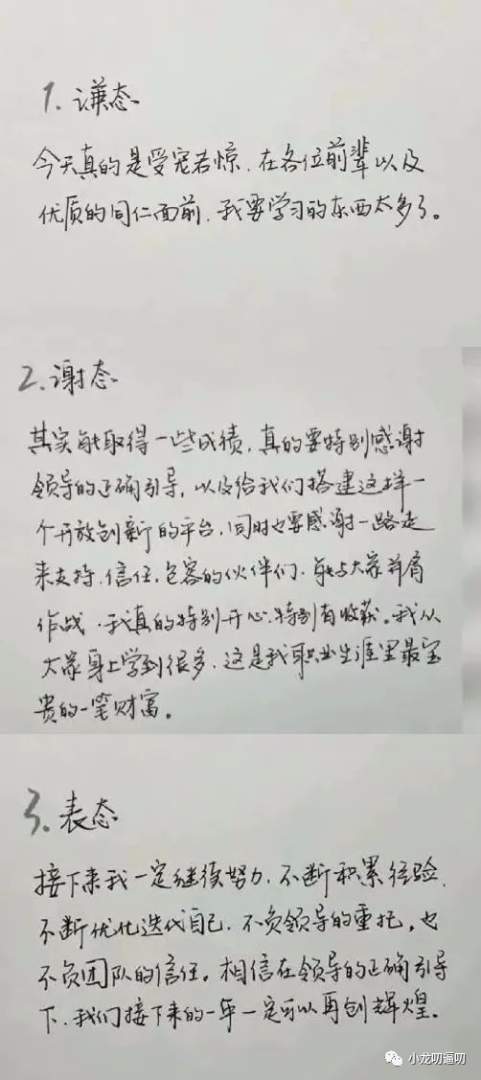 1. 谦态
今天真的是受宠若惊，在各位前辈以及
优质的同仁面前，我要学习的东西太多了。
2. 谢态
其实能取得一些成绩，真的要特别感谢
领导的正确引导，以及给我们搭建这样一
个开放创新的平台，同时也要感谢一路走
来支持、信任、包容的伙伴们，能与大家并肩
作战，我真的特别开心，特别有收获。我从
大家身上学到很多，这是我职业生涯里最宝
贵的一笔财富。
3. 表态
接下来我一定继续努力，不断积累经验，
不断优化迭代自己，不负领导的重托，也
不负团队的信任。相信在领导的正确引导
下，我们接下来的一年一定可以再创辉煌。
小龙叨逼叨